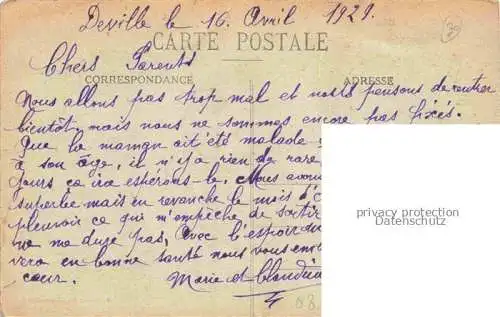 Deville le 16 Avril 1929.
CARTE POSTALE
Chers Parents
CORRESPONDANCE ADRESSE
Nous allons pas trop mal et nous pensons de rentrer
bientôt mais nous ne sommes encore pas fixés.
Que la maman ait été malade
à son âge, il n'y a rien de rare
jours ca ira espérons-le. Nous avons
superbe mais en revanche le mois d'
pleuvoir ce qui m'empêche de sortir
ne me dure pas, avec l'espoir
vera en bonne santé nous vous em
cœur. Marie et
privacy protection
Datenschutz